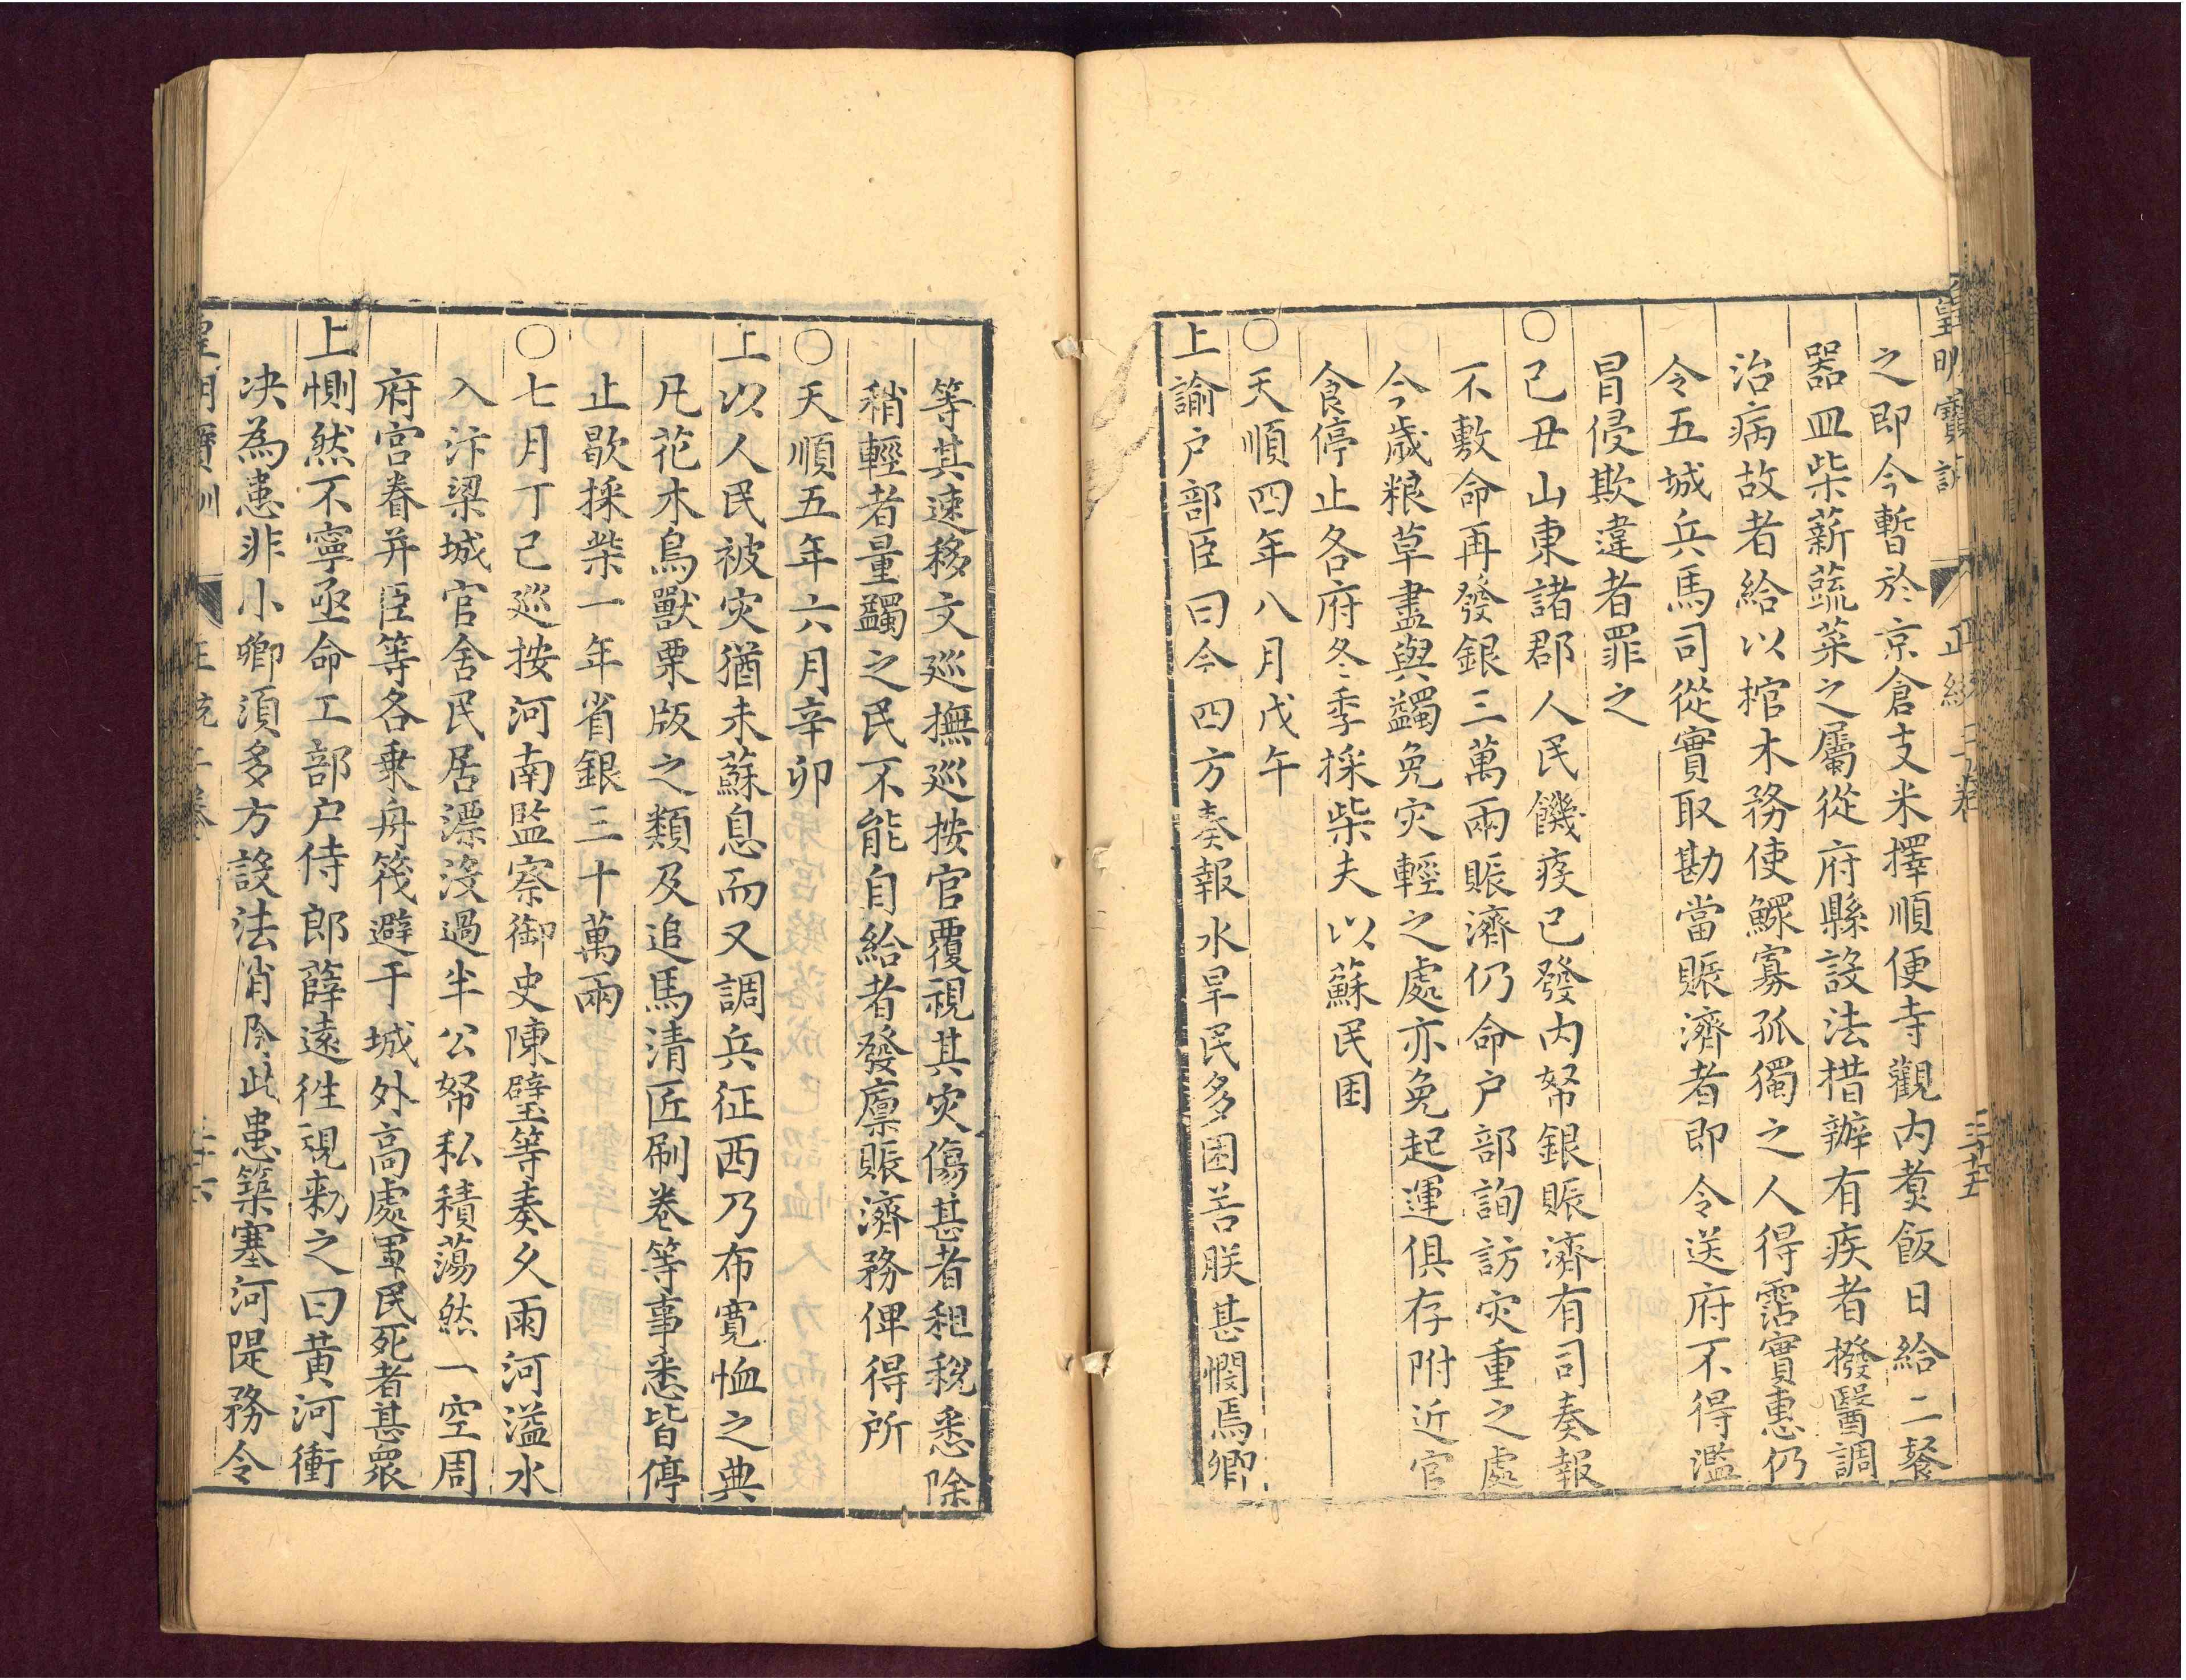 皇明寶訓 正統 下卷 三十五
之即今暫於京倉支米擇順便寺觀内煮飯日給二餐
器皿柴薪蔬菜之屬從府縣設法措辦有疾者撥醫調
治病故者給以棺木務使鰥寡孤獨之人得霑實惠仍
令五城兵馬司從實取勘當賑濟者即令送府不得濫
冒侵欺違者罪之
○己丑山東諸郡人民饑疫已發内帑銀賑濟有司奏報
不敷命再發銀三萬兩賑濟仍命户部詢訪灾重之處
今歲粮草盡與蠲免灾輕之處亦免起運俱存附近官
食停止各府冬季採柴夫以蘇民困
○天順四年八月戊午
上諭户部臣曰今四方奏報水旱民多困苦朕甚憫焉卿
等其速移文巡撫巡按官覆視其灾傷甚者租税悉除
稍輕者量蠲之民不能自給者發廪賑濟務俾得所
○天順五年六月辛卯
上以人民被灾猶未蘇息而又調兵征西乃布寬恤之典
凡花木鳥獸栗版之類及追馬清匠刷卷等事悉皆停
止歇採柴一年省銀三十萬兩
○七月丁己巡按河南監察御史陳璧等奏久雨河溢水
入汴梁城官舍民居漂没過半公帑私積蕩然一空周
府宫眷并臣等各乗舟筏避于城外高處軍民死者甚衆
上惻然不寧亟命工部户侍郎薛遠徃視勑之曰黄河衝
决為患非小卿須多方設法消除此患築塞河隄務令
皇明寶訓 正統 下卷 三十六